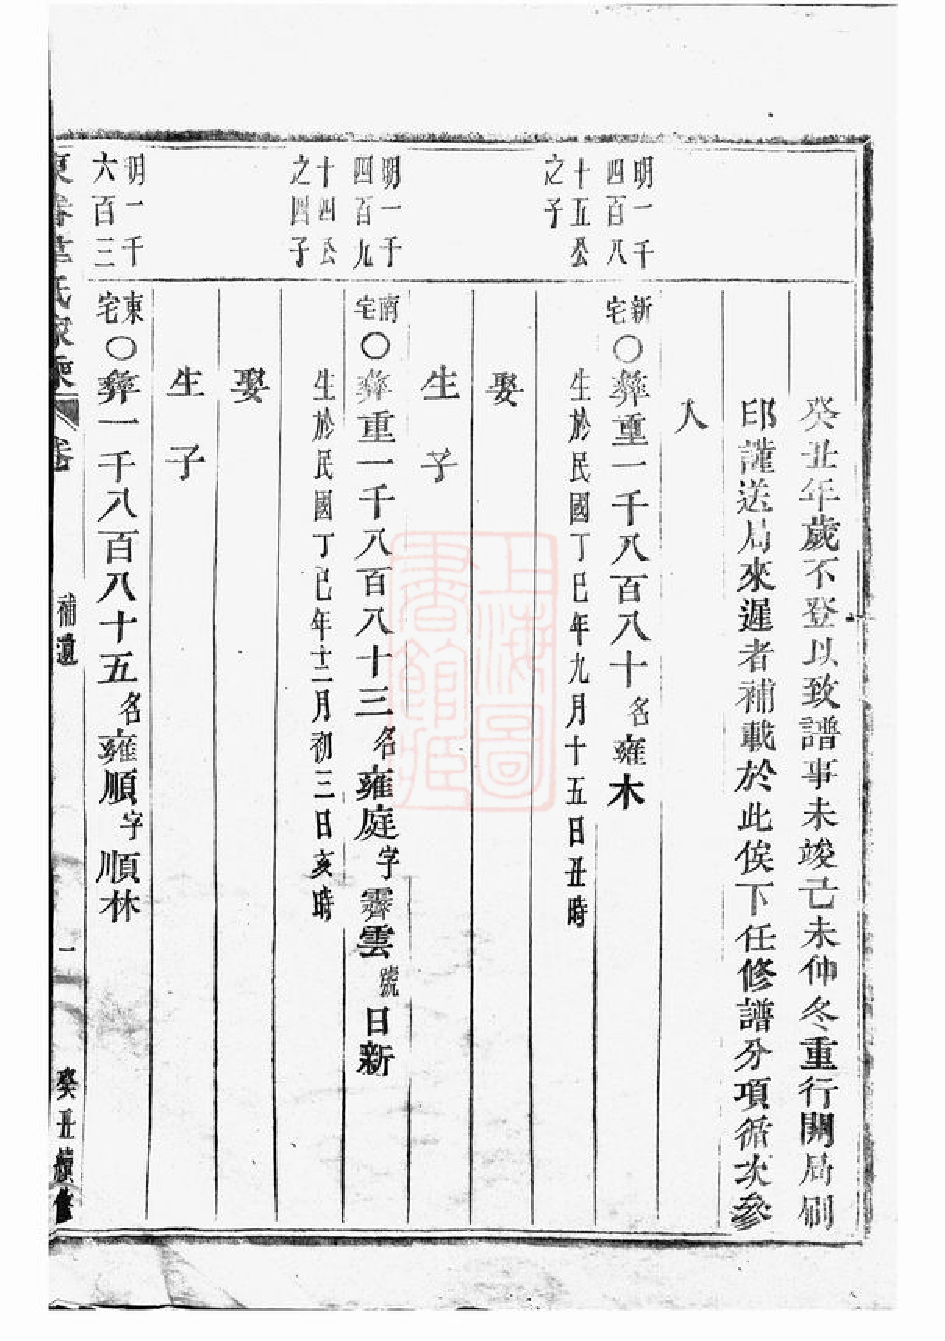 癸丑年歲不登以致譜事未竣己未仲冬重行開局刷
印謹送局來遲者補載於此俟下任修譜分項循次參
入
明一千
四百八
十五公
之子
新宅〇彝重一千八百八十名雍木
生於民國丁巳年九月十五日丑時
娶
生子
明一千
四百九
十四公
之四子
南宅〇彝重一千八百八十三名雍庭字霽雲號日新
生於民國丁巳年十二月初三日亥時
娶
生子
明一千
六百三
東宅〇彝一千八百八十五名雍順字順林
氏家乘
補遺
一
癸丑續修
上海圖
書館藏